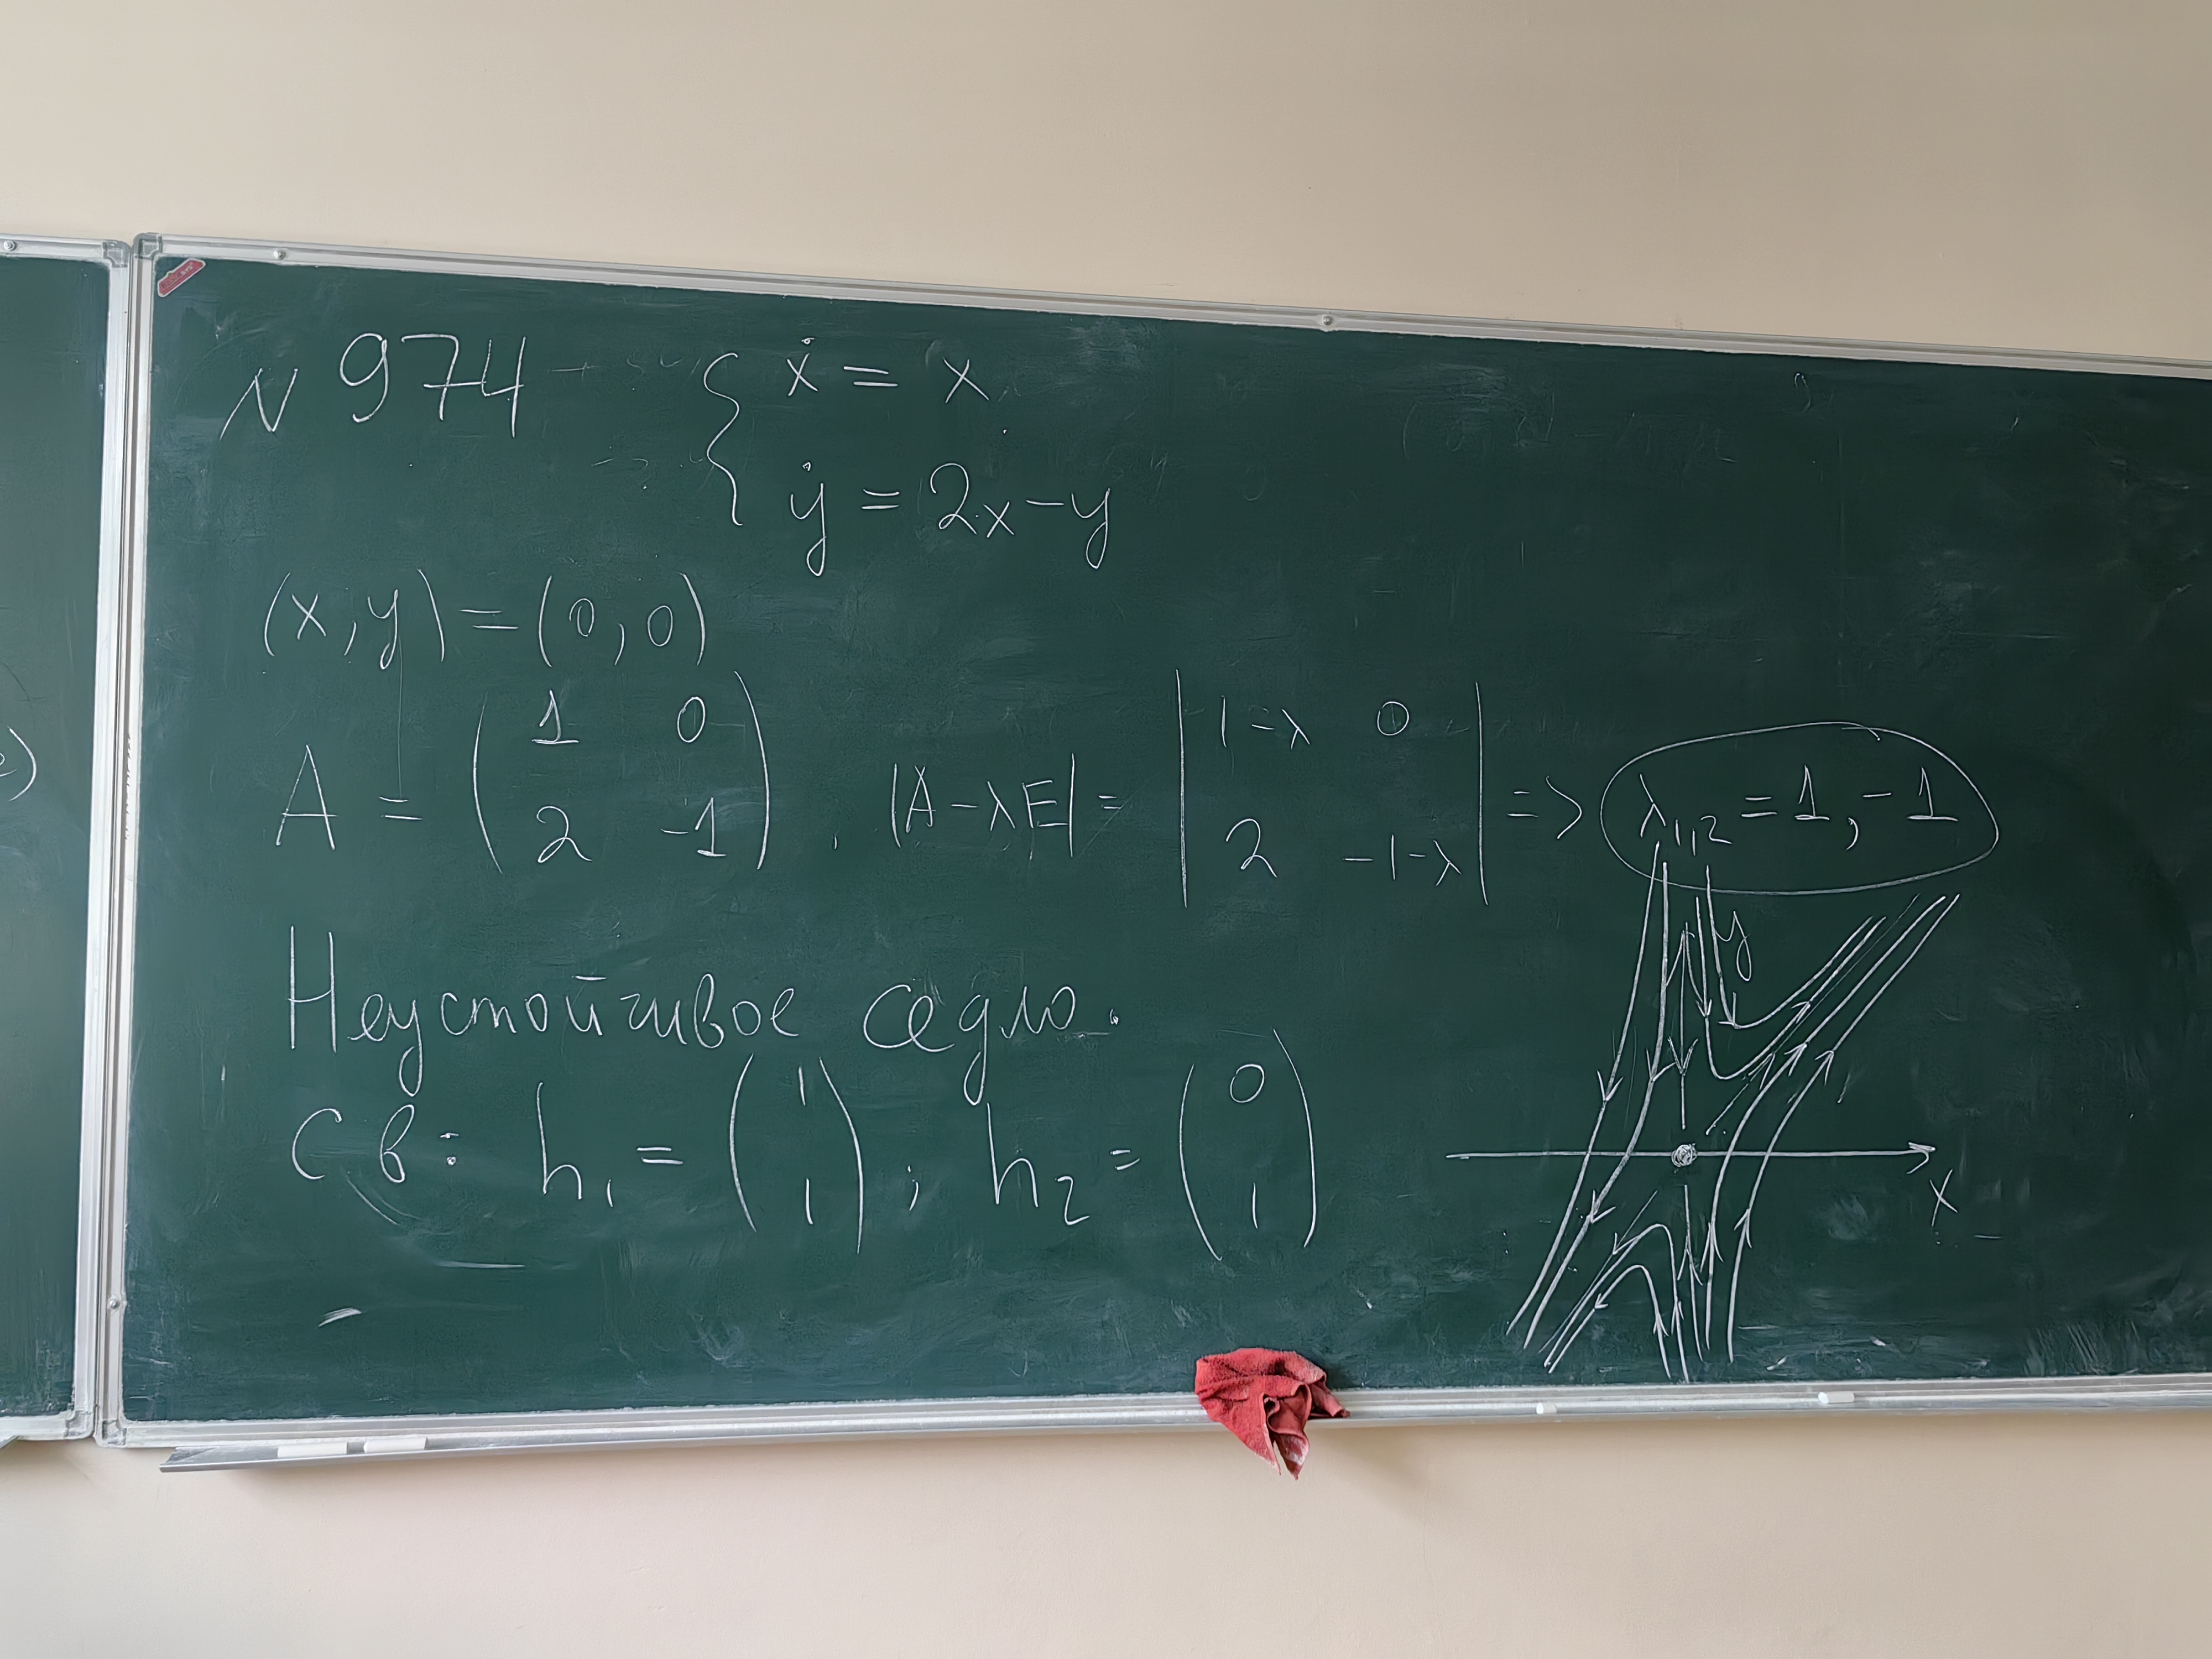 N 974 { ẋ = x
ẏ = 2x-y
(x,y) = (0,0)
A = ( 1 0
2 -1 ), |A-λE| = | 1-λ 0
2 -1-λ | => λ1,2 = 1, -1
Неустойчивое седло.
С.в: h1 = ( 1
1 ) ; h2 = ( 0
1 )
y
x